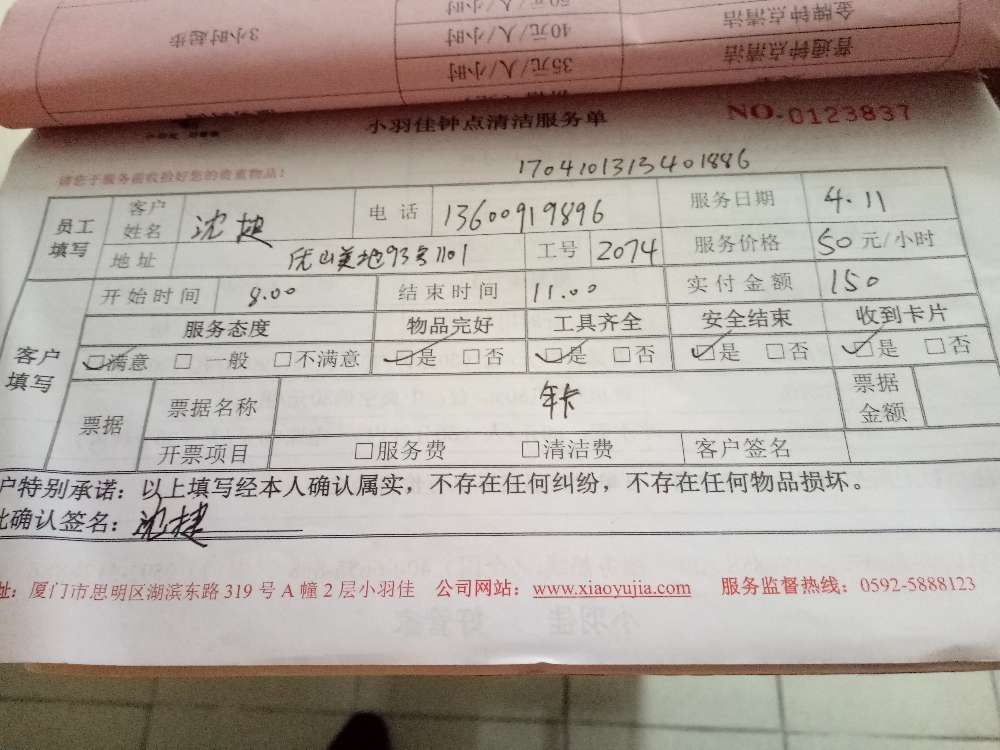 50元/人/小时
金牌钟点清洁 40元/人/小时 3小时起步
普通钟点清洁 35元/人/小时
小羽佳钟点清洁服务单 NO.0123837
请您于服务前收捡好您的贵重物品!
1704101313401886
员工填写 客户姓名 沈捷 电话 13600919896 服务日期 4.11
地址 优山美地93号1101 工号 2074 服务价格 50元/小时
客户填写 开始时间 8.00 结束时间 11.00 实付金额 150
服务态度 物品完好 工具齐全 安全结束 收到卡片
☑满意 □一般 □不满意 ☑是 □否 ☑是 □否 ☑是 □否 ☑是 □否
票据 票据名称 年卡 票据金额
开票项目 □服务费 □清洁费 客户签名
户特别承诺：以上填写经本人确认属实，不存在任何纠纷，不存在任何物品损坏。
此确认签名：沈捷
址：厦门市思明区湖滨东路319号A幢2层小羽佳 公司网站：www.xiaoyujia.com 服务监督热线：0592-5888123